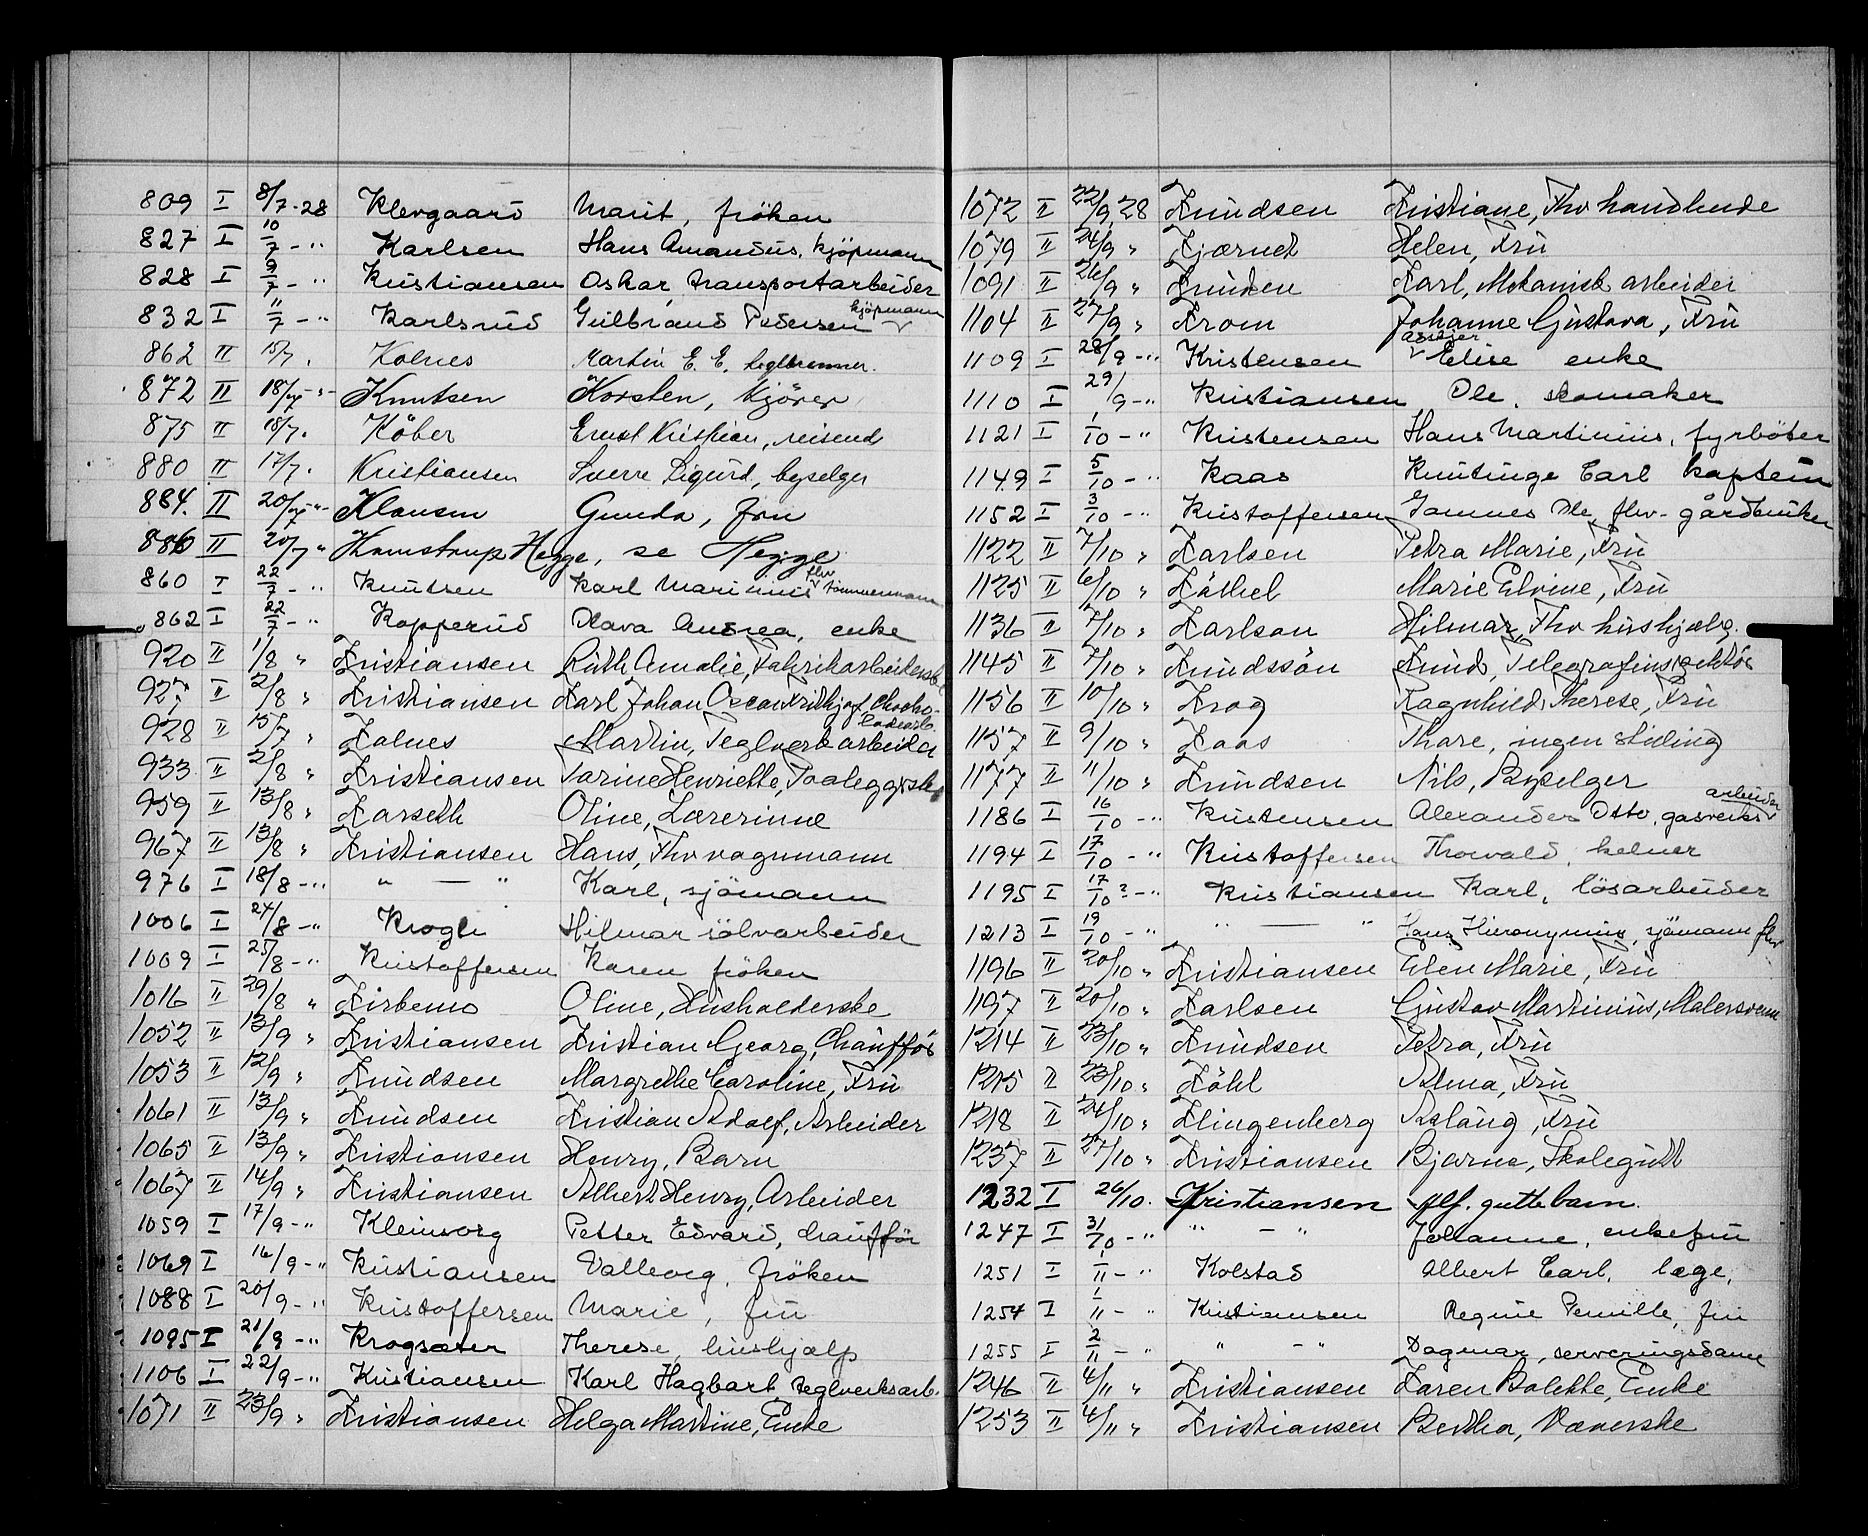 809 I 8/7-28 Klevgaard Marit, fröken
827 I 10/7 - " Karlsen Hans Amandus, kjöpmann
828 I 9/7 - " Kristiansen Oskar, transportarbeider
832 I 11/7 - " Karlsrud Gulbrand Pedersen kjöpmann
862 II 15/7. Kolnes Martin E. E. teglbrenner.
872 II 18/7 - " - Knutsen Torsten, kjörer
875 II 18/7. Köber Ernst Kristian, reisende
880 II 17/7. Kristiansen Sverre Sigurd, byselger
884. II 20/7 - " - Klausen Gunda, fru
886 II 20/7 " Kamstrup Hegge, se Hegge
860 I 22/7 - " Knutsen Karl Marinius fhv tömmermann
862 I 22/7 - " Kopperud Olava Andrea, enke
920 II 1/8 " Kristiansen Ruth Amalie, Fabrikarbeiderske
927 II 2/8 " Kristiansen Karl Johan Oscar Fridhjof, Chocoladearb.
928 II 15/7 " Kolnes Martin, Teglverkarbeider
933 II 2/8 " Kristiansen Tarine Henriette, Paaleggerske
959 II 13/8 " Karseth Oline, Lærerinne
967 II 13/8 " Kristiansen Hans, Fhv vognmann
976 I 18/8 - " " — " Karl, sjömann
1006 I 24/8 - " Krogh Hilmar sölvarbeider
1009 I 25/8 - " Kristoffersen Karen fröken
1016 II 29/8 " Kirbemo Oline, Husholderske
1052 II 13/9 " Kristiansen Kristian Georg, Chaufför
1053 II 12/9 " Knudsen Margrethe Caroline, Fru
1061 II 13/9 " Knudsen Kristian Adolf, Arbeider
1065 II 13/9 " Kristiansen Henry, Barn
1067 II 14/9 " Kristiansen Albert Henry, Arbeider
1059 I 17/9 - " Kleivorg Petter Edvard, chaufför
1069 I 16/9 - " Kristiansen Valborg, fröken
1088 I 20/9 - " Kristoffersen Marie, fru
1095 I 21/9 - " Krogsæter Therese, hushjælp
1106 I 22/9 - " Kristiansen Karl Hagbart teglverksarb.
1071 II 23/9 " Kristiansen Helga Martine, Enke
1072 II 22/9 28 Knudsen Kristiane, Fhv handlende
1079 II 24/9 " Kjærnet Helen, Fru
1091 II 26/9 " Knudsen Karl, Mekanisk arbeider
1104 II 27/9 " Krom Johanne Gustava, Fru
1109 I 28/9 - " Kristensen Elise enke
1110 I 29/9 - " Kristiansen Ole, skomaker
1121 I 1/10 - " Kristensen Hans Martinius, fyrböter
1149 I 5/10 - " Kaas Knutinge Carl kaptein
1152 I 3/10 - " Kristoffersen Hannes Ole, fhv - gårdbruker
1122 II 7/10 " Karlsen Petra Marie, Fru
1125 II 6/10 " Käthel Marie Elvine, Fru
1136 II 7/10 " Karlson Hilmar, Fhv hushjælp.
1145 II 7/10 " Knudssön Knud, Telegrafinspektör
1156 II 10/10 " Krog Ragnhild Therese, Fru
1157 II 9/10 " Kaas Thore, ingen stilling
1177 II 11/10 " Knudsen Nils, Byselger
1186 I 16/10 - " Kristensen Alexander Otto, gasverks arbeider
1194 I 17/10 - " Kristoffersen Thorvald, kelner
1195 I 17/10? - " Kristiansen Karl, lösarbeider
1213 I 19/10 - " " — " Hans Hieronymus, sjömann fhv
1196 II 20/10 " Kristiansen Elen Marie, Fru
1197 II 20/10 " Karlsen Gustav Martinius, Malersvenn
1214 II 23/10 " Knudsen Petra, Fru
1215 II 23/10 " Köhl Alma, Fru
1218 II 24/10 " Klingenberg Aslaug, Fru
1237 II 27/10 " Kristiansen Bjarne, Skolegutt
1232 I 26/10. Kristiansen dlf. guttebarn.
1247 I 31/10 - " " — " Johanne, enkefru
1251 I 1/11 - " Kolstad Albert Carl, læge,
1254 I 1/11 - " Kristiansen Regine Pernille, fru
1255 I 2/11 - " " — " Dagmar, serveringsdame
1246 II 4/11 " Kristiansen Karen Bolette, Enke
1253 II 4/11 " Kristiansen Bertha, Væverske